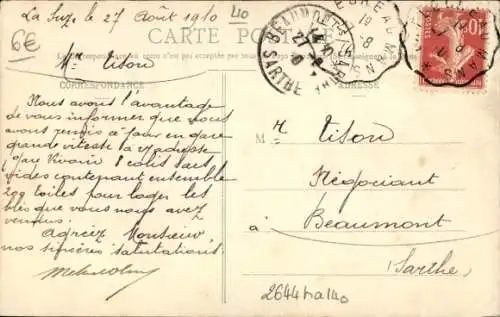 La Suze le 27 Août 1910
40
6€
CARTE POSTALE
Mr Tison
CORRESPONDANCE
ADRESSE
Nous avons l'avantage
de vous informer que nous
avons remis à jour en gare
grande vitesse à adresse
gare Vivoin 1 colis sacs
vides contenant ensemble
200 toiles pour loger les
blés que vous nous avez
vendus.
Agréez Monsieur,
nos sincères salutations.
M r Tison
Négociant
à Beaumont
Sarthe
BEAUMONT-S-SARTHE
27 -8
SARTHE
10
POSTES
2644ha140